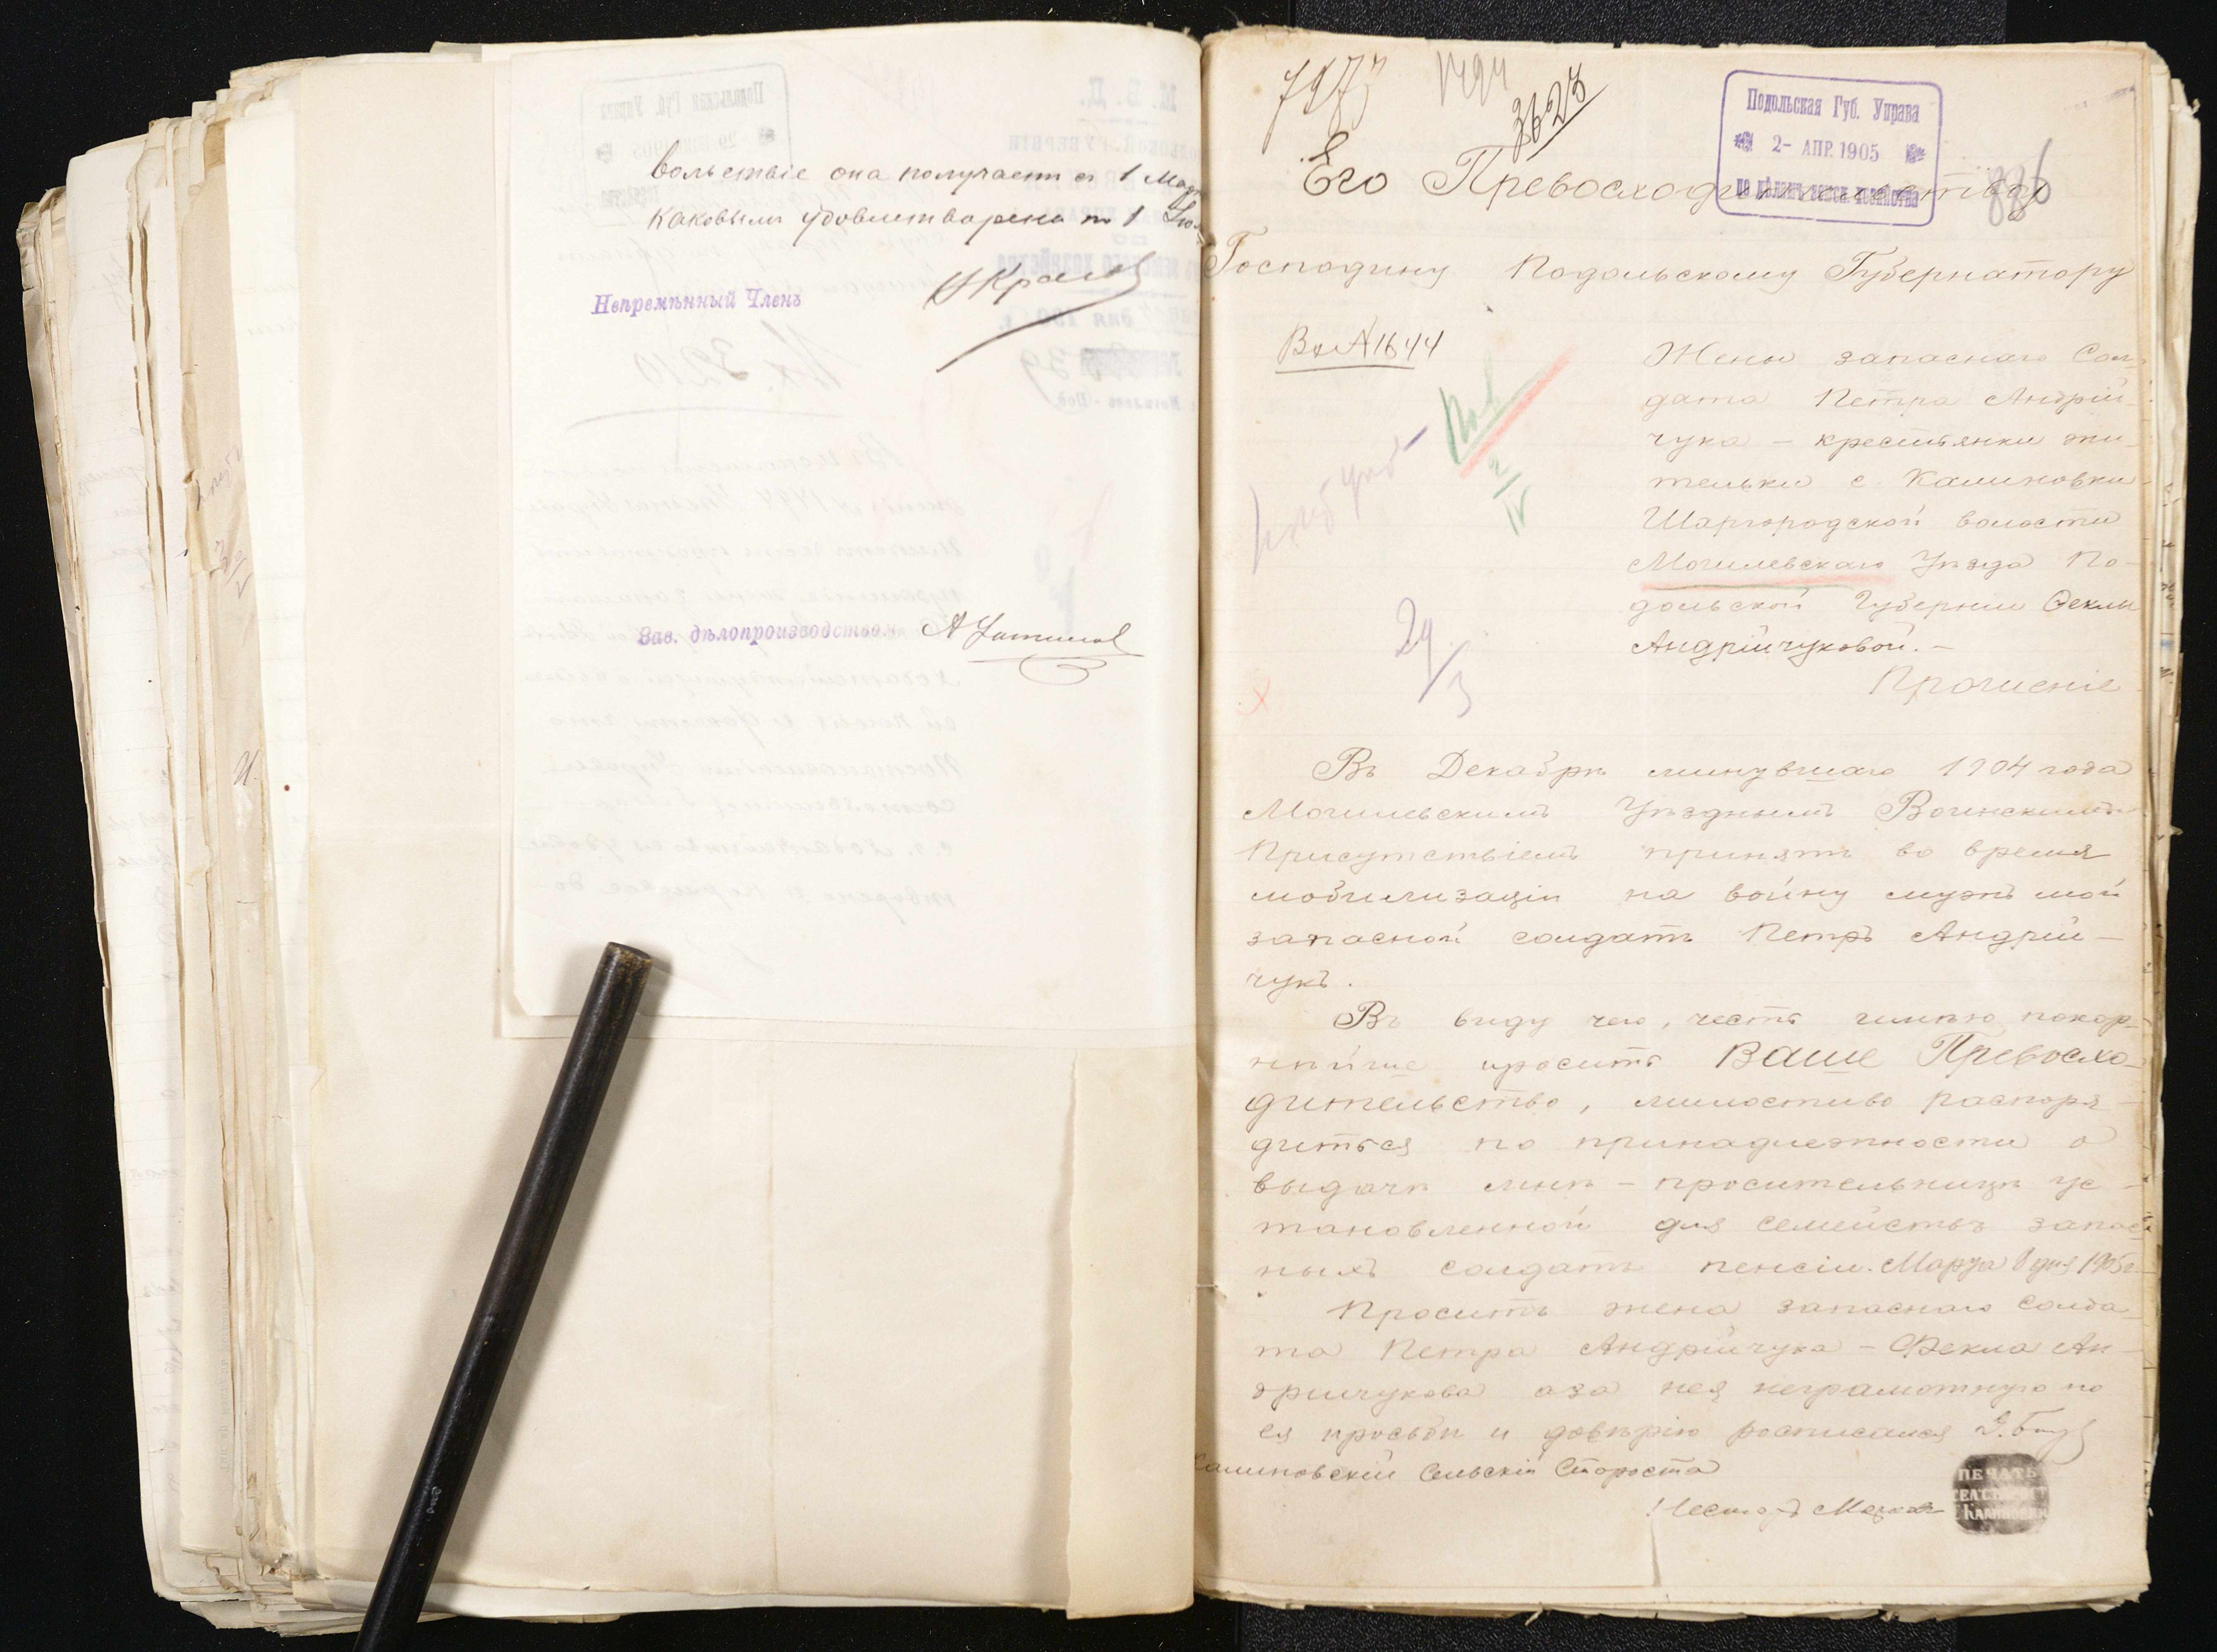 вольствіе она получаетъ съ 1 Мар
каковымъ удовлетворена по 1
Непремѣнный Членъ
Зав. дѣлопроизводствомъ
3623
Подольская Губ. Управа
2- АПР. 1905
по дѣламъ земск. хозяйства
886
Его Превосходительству
Господину Подольскому Губернатору
Вх № 1644
Жены запаснаго Сол-
дата Петра Андрій-
чука - крестьянки жи-
тельки с. Калиновки
Шаргородской волости
Могилевскаго Уѣзда По-
дольской Губерніи Феклы
Андрійчуковой. -
Прошеніе
29/3
Въ Декабрѣ минувшаго 1904 года
Могилевскимъ Уѣзднымъ Воинскимъ
Присутствіемъ принятъ во время
мобилизаціи на войну мужъ мой
запасной солдатъ Петръ Андрій-
чукъ.
Въ виду чего, честь имѣю покор-
нѣйше просить Ваше Превосхо-
дительство, милостиво распоря-
диться по принадлежности о
выдачѣ мнѣ - просительницѣ ус-
тановленной для семействъ запас-
ныхъ солдатъ пенсіи. Марта 8 дня 1905 г.
Проситъ жена запаснаго солда-
та Петра Андрійчука - Фекла Ан-
дрійчукова а за нея неграмотную по
ея просьбѣ и довѣрію росписался
Калиновскій Сельскій Староста
ПЕЧАТЬ